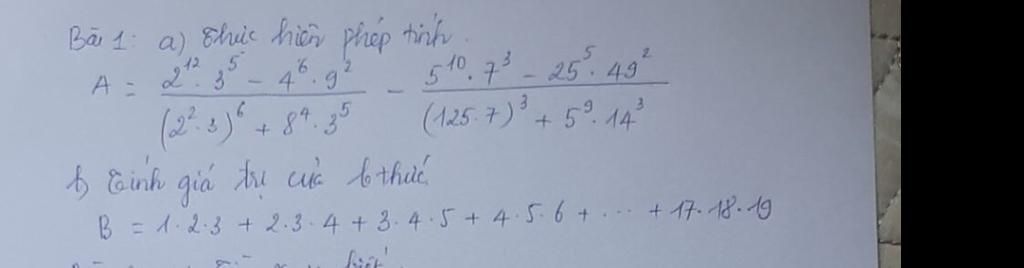 Bài 1: a) Thực hiện phép tính.
A = \frac{2^{12} \cdot 3^5 - 4^6 \cdot 9^2}{(2^2 \cdot 3)^6 + 8^4 \cdot 3^5} - \frac{5^{10} \cdot 7^3 - 25^5 \cdot 49^2}{(125 \cdot 7)^3 + 5^9 \cdot 14^3}
b) Tính giá trị của b thức.
B = 1 \cdot 2 \cdot 3 + 2 \cdot 3 \cdot 4 + 3 \cdot 4 \cdot 5 + 4 \cdot 5 \cdot 6 + \cdots + 17 \cdot 18 \cdot 19
biết